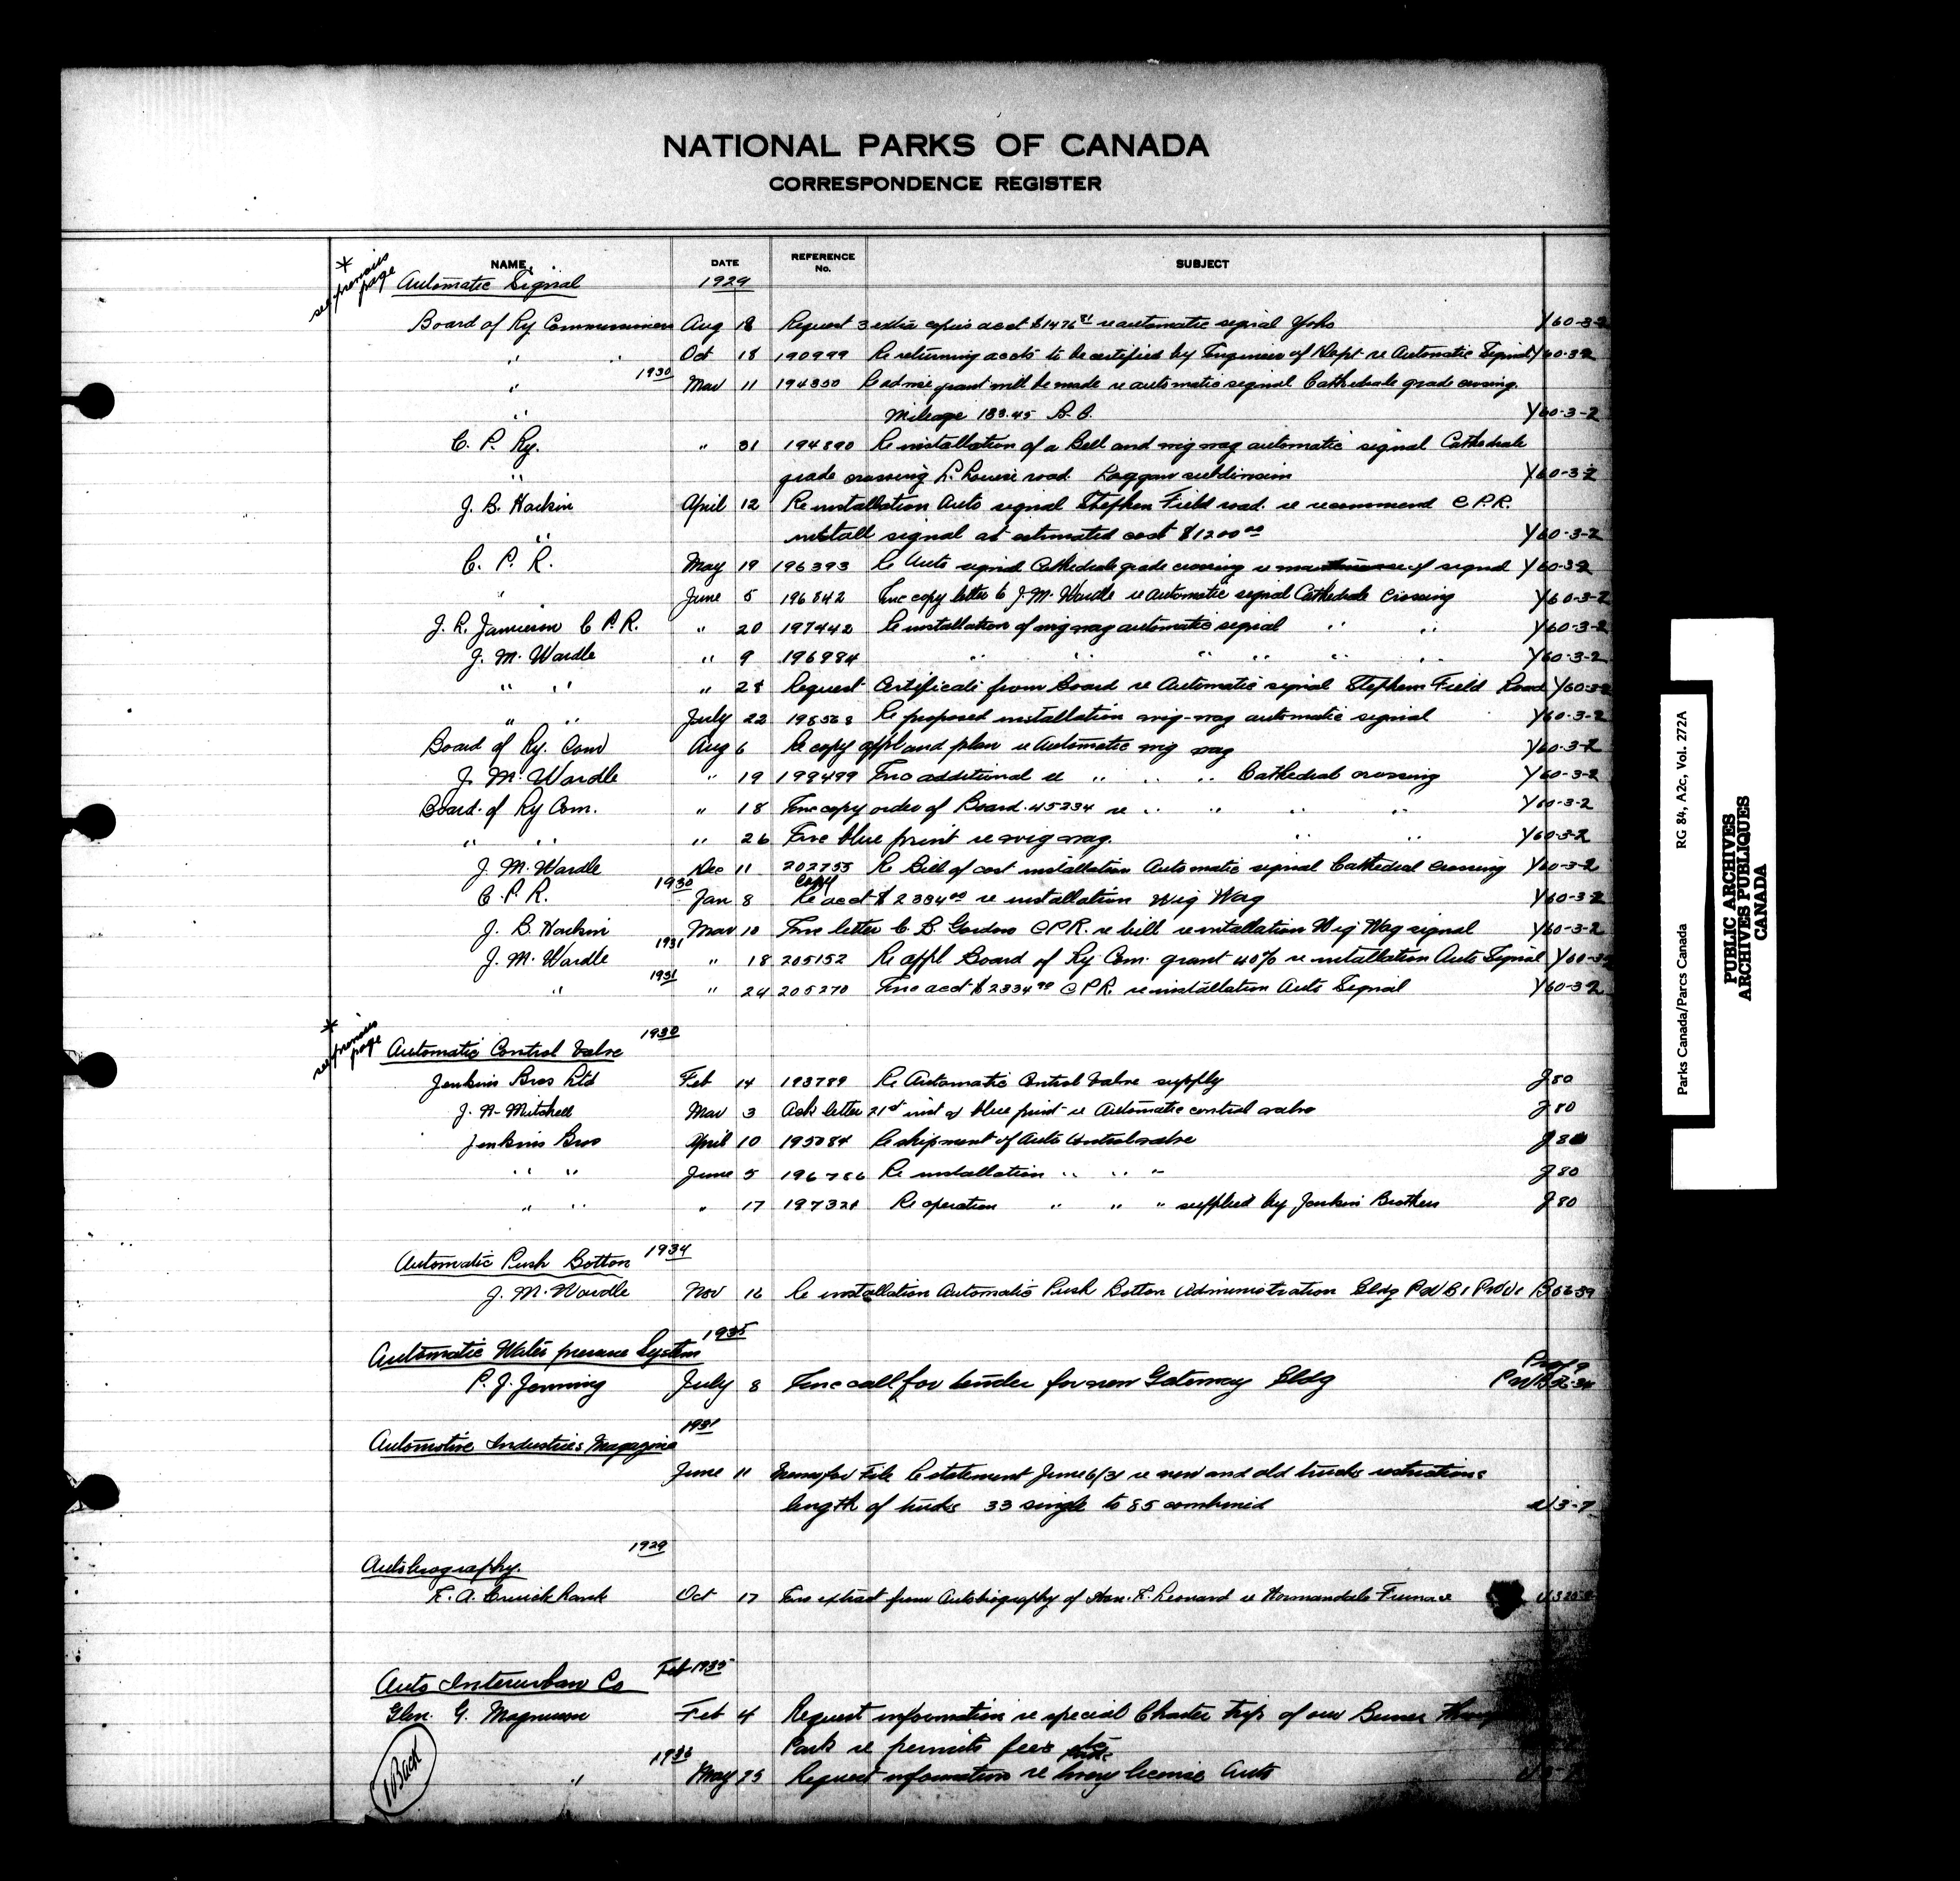 NATIONAL PARKS OF CANADA
CORRESPONDENCE REGISTER
NAME DATE REFERENCE No. SUBJECT
* see previous page
Automatic Signal 1929
Board of Ry Commissioners Aug 18 Request 3 extra copies acct $1476 81 re automatic signal Yoho Y60-3-2
" " Oct 18 190999 Re returning accts to be certified by Engineer of Dept re Automatic Signal Y60-3-2
" 1930 Mar 11 194350 Re advise grant will be made re automatic signal Cathedrale grade crossing.
" Mileage 133.45 B.C. Y60-3-2
C. P. Ry. " 31 194890 Re installation of a Bell and wig wag automatic signal Cathedrale
" grade crossing L. Louise road Laggan subdivision Y60-3-2
J. B. Harkin April 12 Re installation Auto signal Stephen Field road. re recommend C.P.R.
" install signal at estimated cost $1200 00 Y60-3-2
C. P. R. May 19 196393 Re Auto signal Cathedrale grade crossing re maintenance of signal Y60-3-2
" June 5 196842 Enc copy letter to J. M. Wardle re Automatic signal Cathedrale Crossing Y60-3-2
J. R. Jamieson C P.R. " 20 197442 Re installation of wig wag automatic signal " " Y60-3-2
J. M. Wardle " 9 196984 " " " " " " Y60-3-2
" " " 28 Request Certificate from Board re Automatic signal Stephen Field Road Y60-3-2
" " July 22 198568 Re proposed installation wig-wag automatic signal Y60-3-2
Board of Ry. Com Aug 6 Re copy appl and plan re Automatic wig wag Y60-3-2
J. M. Wardle " 19 199499 Enc additional re " " " Cathedral crossing Y60-3-2
Board of Ry Com. " 18 Enc copy order of Board 45234 re " " " " Y60-3-2
" " " 26 Enc blue print re wig wag. " " Y60-3-2
J. M. Wardle Dec 11 202755 Re Bill of cost installation Automatic signal Cathedral Crossing Y60-3-2
C. P. R. 1930 Jan 8 copy Re acct $2334 90 re installation Wig Wag Y60-3-2
J. B. Harkin Mar 10 Enc letter C. B. Gordon C.P.R. re bill re installation Wig Wag signal Y60-3-2
J. M. Wardle 1931 " 18 205152 Re appl Board of Ry Com. grant 40% re installation Auto Signal Y60-3-2
" 1931 " 24 205270 Enc acct $2334 90 C.P.R. re installation Auto Signal Y60-3-2
* see previous page
Automatic Control Valve 1930
Jenkins Bros Ltd Feb 14 193789 Re Automatic Control Valve supply J80
J. N. Mitchell Mar 3 Ack letter 21st inst & blue print re Automatic control valve J80
Jenkins Bros April 10 195084 Re shipment of Auto control valve J80
" " June 5 196786 Re installation " " " J80
" " " 17 197328 Re operation " " " supplied by Jenkins Brothers J80
Automatic Push Botton 1934
J. M. Wardle Nov 16 Re installation Automatic Push Botton Administration Bldg
Automatic Water pressure System 1935
P. J. Jenning July 8 Enc call for tender for new Gateway Bldg
Automotive Industries Magazine 1931
June 11 Memo for File Re statement June 6/31 re new and old trucks restrictions
length of trucks 33 single to 85 combined
Autobiography. 1929
E. A. Cruickshank Oct 17 Enc extract from Autobiography of Hon. E. Leonard re Normandale Furnace
Auto Interurban Co Feb 1935
Glen. G. Magnuson Feb 4 Request information re special Charter trips of our Buses through
Park re permits fees etc
" 1936 May 25 Request information re livery license Auto
Back
Parks Canada/Parcs Canada RG 84, A2c, Vol. 272A
PUBLIC ARCHIVES
ARCHIVES PUBLIQUES
CANADA